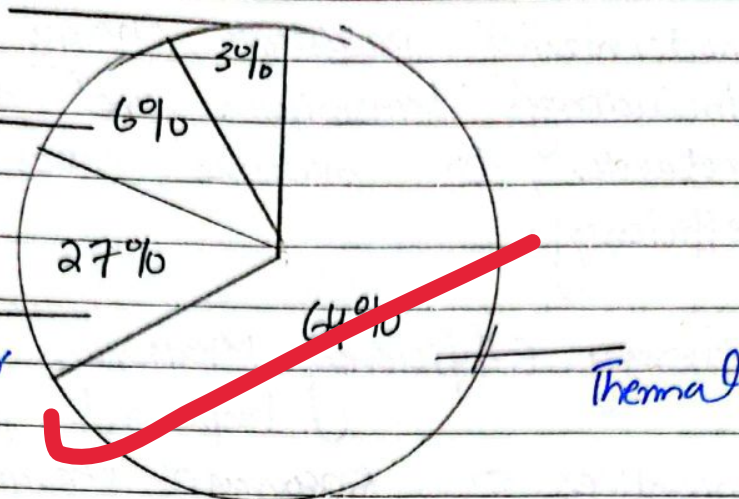 3%
6%
27%
64%
Thermal